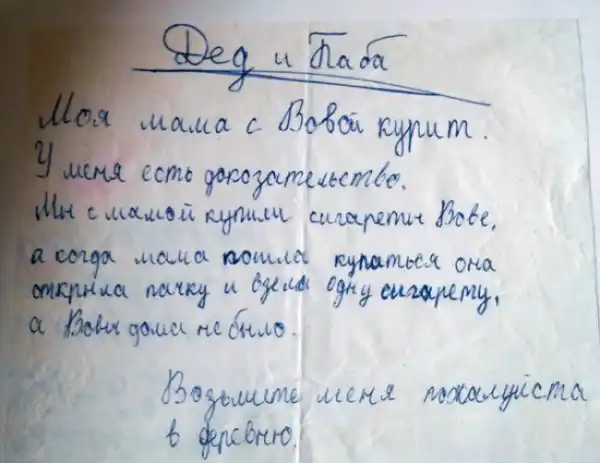 Дед и Баба
Моя мама с Вовой курит.
У меня есть докозательство.
Мы с мамой купили сигареты Вове,
а когда мама пошла купаться она
открыла пачку и взела одну сигарету,
а Вовы дома не было.
Возьмите меня пожалуйста
в деревню.